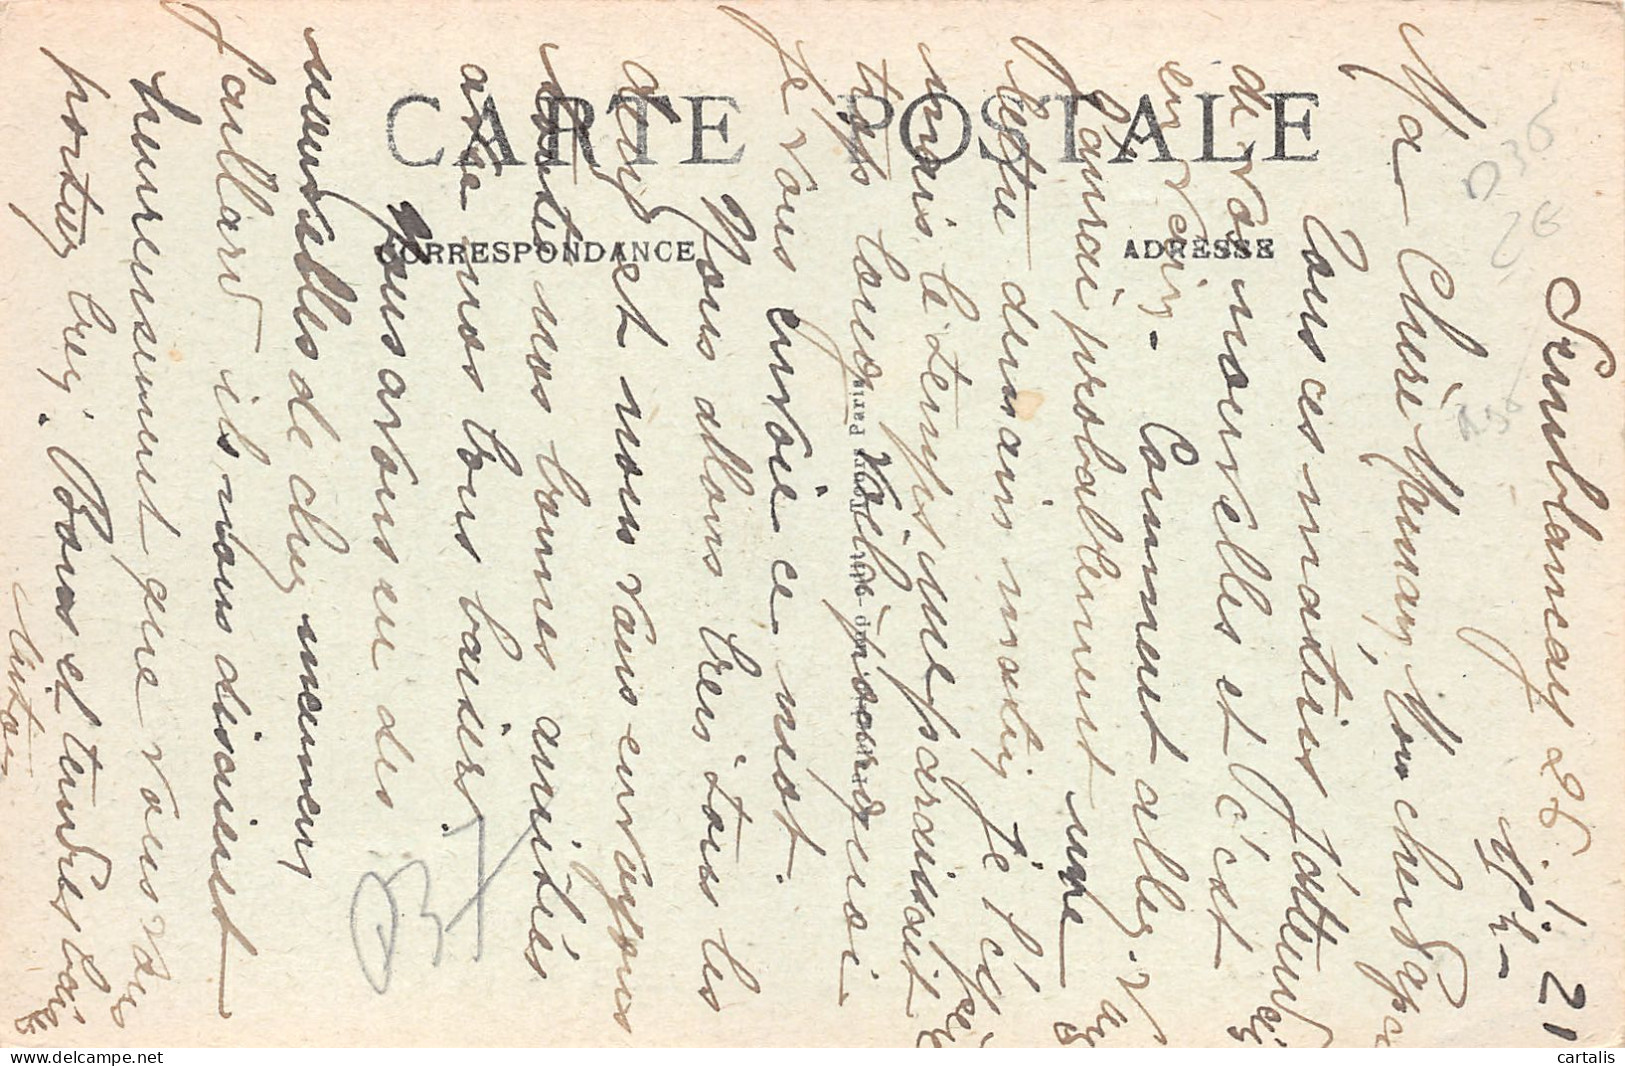 CARTE POSTALE
CORRESPONDANCE
ADRESSE
Semblançay 26. 1. 21
Ma Chère Maman, Mon cher Papa
Tous ces matins j'attendais
de vos nouvelles et c'est
en vain. Comment allez-v
J'aurai probablement une
lettre demain matin
mais le temps me paraissait
trop long. Voilà pourquoi
je vous envoie ce mot.
Nous allons bien tous les
deux et nous vous envoyons
toutes nos bonnes amitiés
avec nos bons baisers.
Nous avons eu des
nouvelles de chez
ils nous disaient
heureusement que vous vous
portiez bien. Bons et tendres baisers
D36
26
cartalis